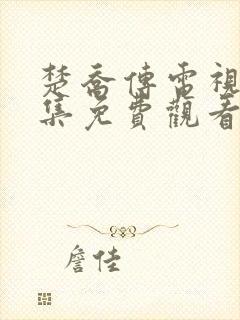 楚喬傳電視
集免費觀看
詹佳